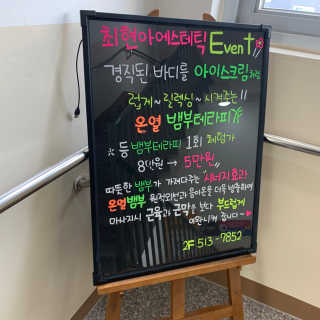 최현아에스테틱 Event
경직된 바디를 아이스크림처럼
럽게~ 릴렉싱~ 시켜주는!!
온열 뱀부테라피
* 등 뱀부테라피 1회 체험가
8만원 → 5만원
따뜻한 뱀부가 가져다주는 "시너지효과
온열뱀부 원적외선과 음이온을 더욱 방출하여
마사지시 근육과 근막을 보다 부드럽게
이완시켜 줍니다~
2F 513-7852